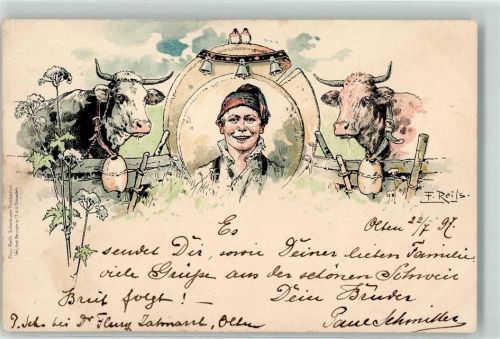 F. Reiss
Olten 22/7 97.
Es
sendet Dir, sowie Deiner lieben Familie
viele Grüsse aus der schönen Schweiz
Brief folgt! — Dein Bruder
P. Sch. bei Dr Fleury Zahnarzt, Olten Paul Schmitter